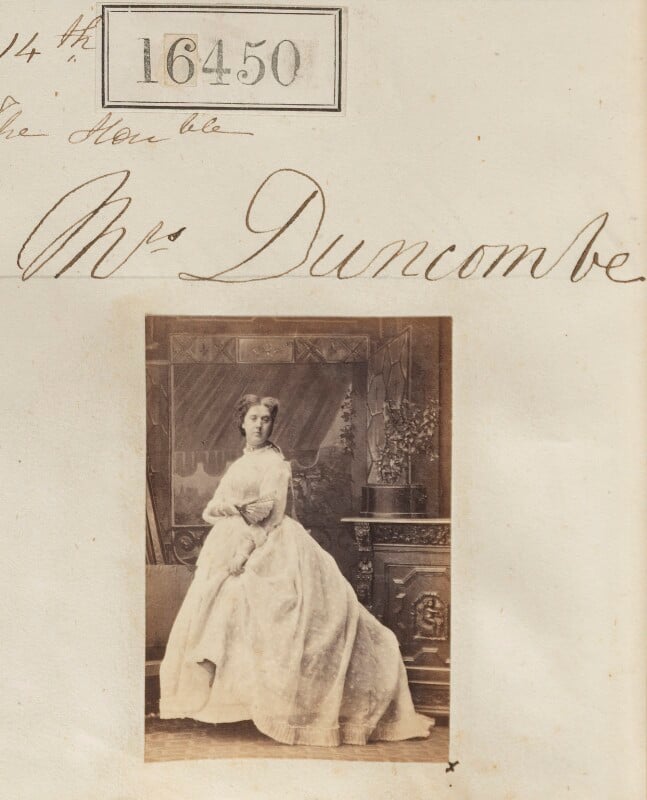 14th
16450
The Honble
Mrs Duncombe
x